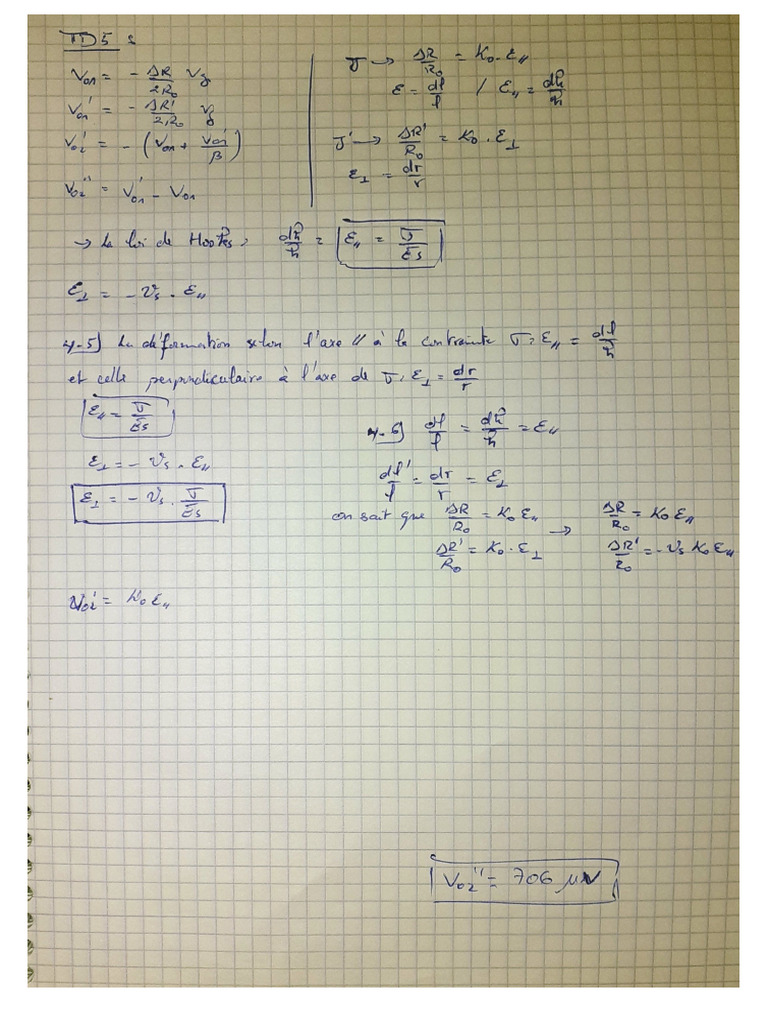 TD5 :
V01 = - ΔR/2R0 Vg
V01' = - ΔR'/2R0 Vg
V02' = - (V01 + V01'/β)
V02'' = V01' - V01
J → ΔR/R0 = K0 . E//
E = dl/l / E// = dh/h
J' → ΔR'/R0 = K0 . E⊥
E⊥ = dr/r
→ La loi de Hookes, dh/h = E// = σ/Es
E⊥ = - νs . E//
4-5) La déformation selon l'axe // à la contrainte σ : E// = dl/h
et celle perpendiculaire à l'axe de σ : E⊥ = dr/r
E// = σ/Es
E⊥ = - νs . E//
E⊥ = - νs . σ/Es
4-6) dl/l = dh/h = E//
dl'/l = dr/r = E⊥
on sait que ΔR/R0 = K0 E// → ΔR/R0 = K0 E//
ΔR'/R0 = K0 . E⊥ ΔR'/R0 = - νs K0 E//
V02' = K0 E//
V02'' = 706 μV